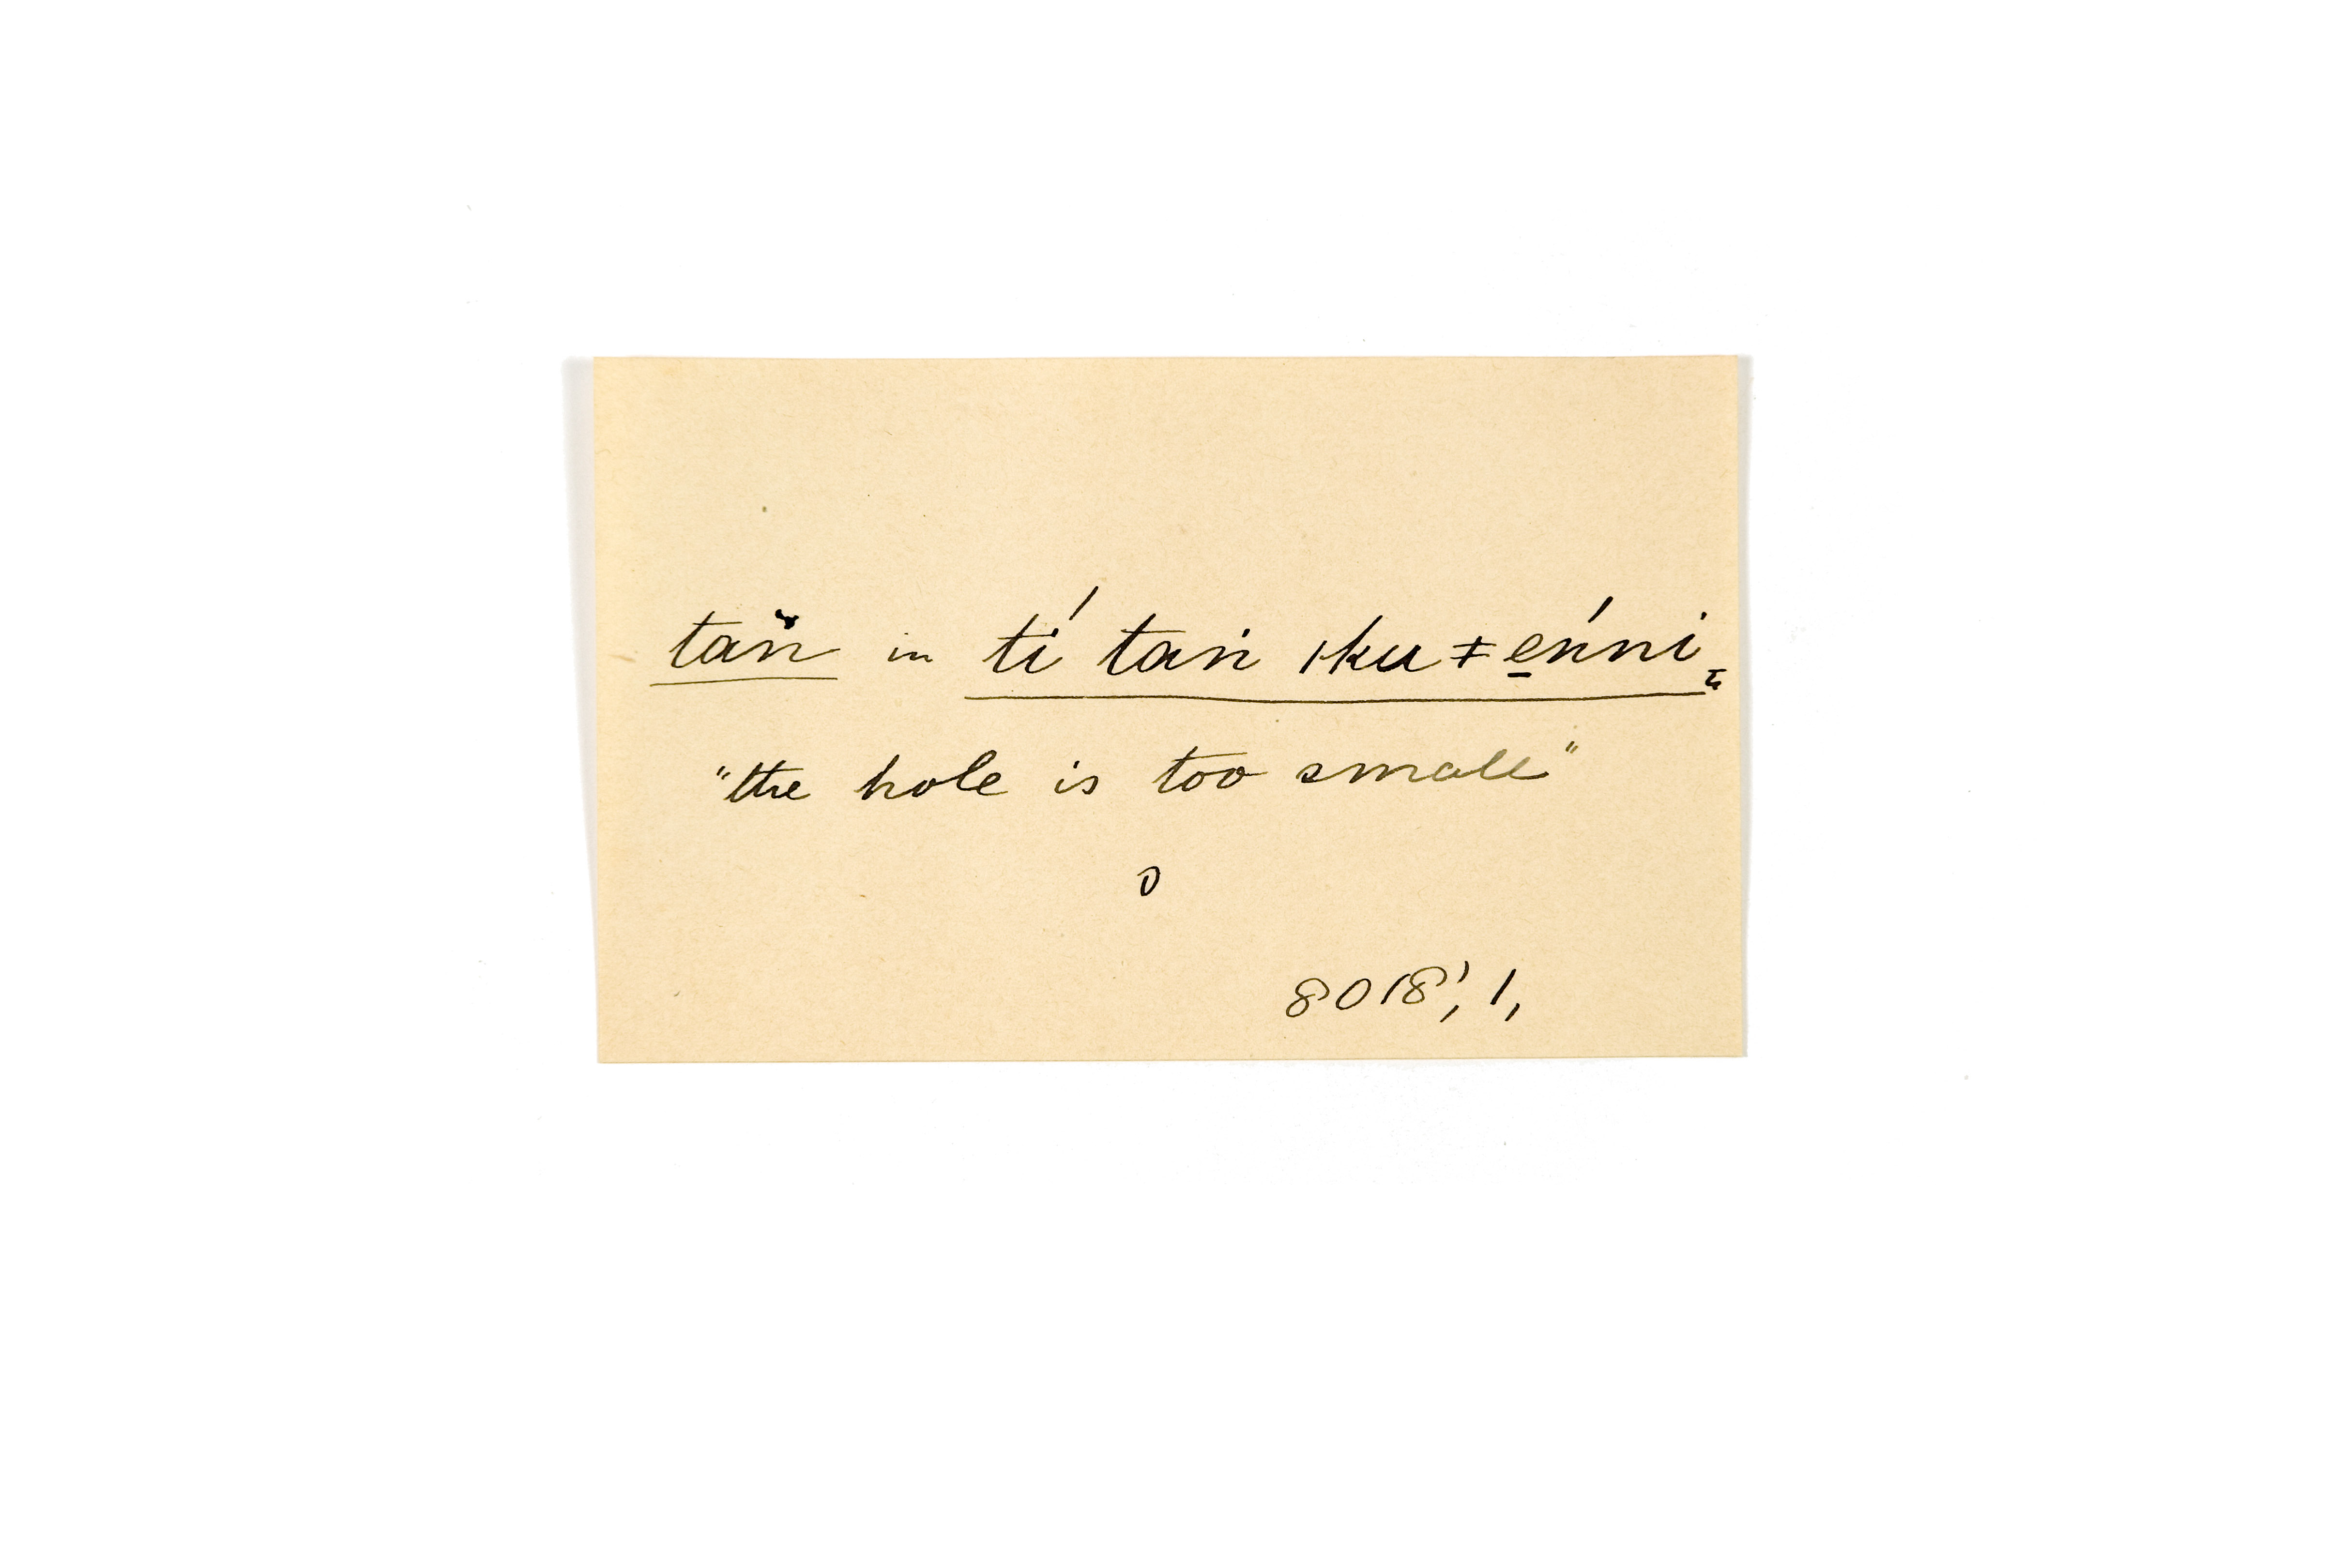 taṅ in tí taṅ ıku ‡ eṅ́ni
"the hole is too small"
8018', 1,